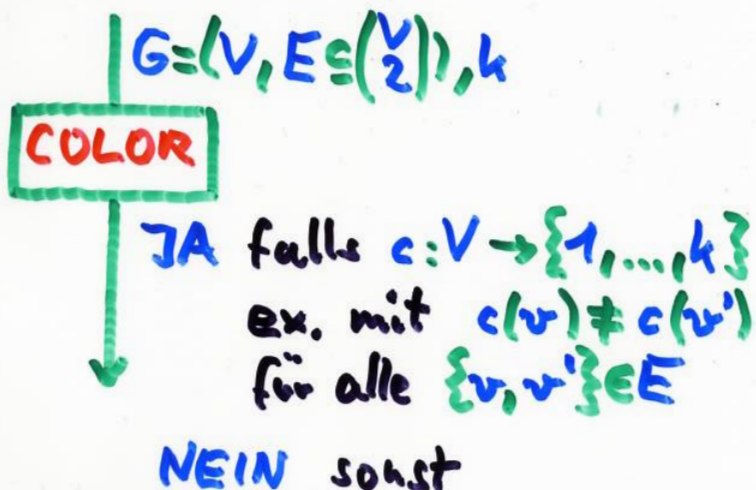 G=(V, E⊆(V 2)), k
COLOR
JA falls c:V→{1,...,k}
ex. mit c(v)≠c(v')
für alle {v,v'}∈E
NEIN sonst